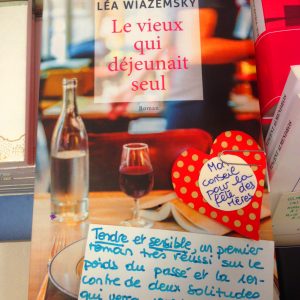 LÉA WIAZEMSKY
Le vieux
qui
déjeunait
seul
Roman
Mon
conseil
pour la
fête des
Mères
Tendre et sensible, un premier
roman très réussi sur le
poids du passé et la ren-
contre de deux solitudes
qui